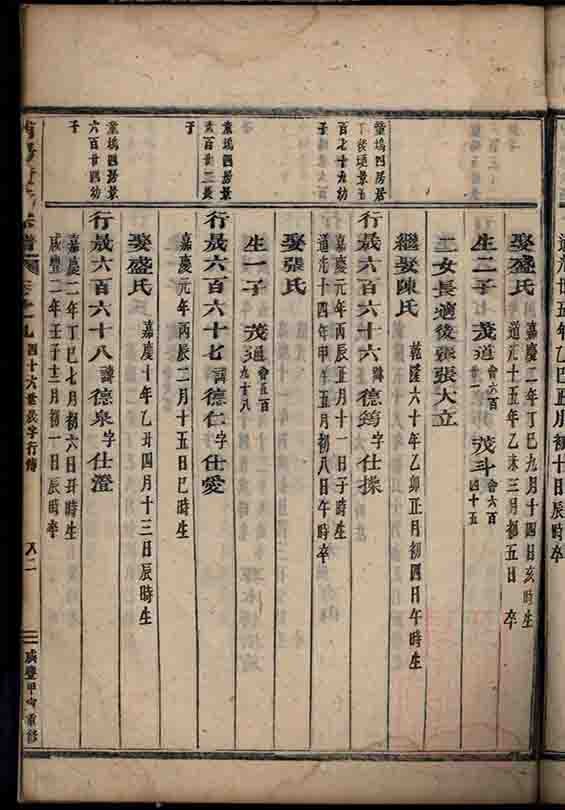 道光廿五年乙巳正月初十日
娶盛氏 嘉慶二年丁巳九月十四日亥時生
道光十五年乙未三月初五日 卒
生二子 茂道 會六百 廿一 茂斗 會六百 四十五
二女長適後張張大立
繼娶陳氏 乾隆六十年乙卯正月初四日午時生
葉塢四房居
百七十九幼
子
行晟六百六十六 諱德筠字仕操
嘉慶元年丙辰正月十一日子時生
道光十四年甲午五月初八日午時卒
娶張氏
生一子 茂道 會五百 九十八
葉塢四房景
六百廿三長
子
行晟六百六十七 諱德仁字仕愛
嘉慶元年丙辰二月十五日巳時生
娶盛氏 嘉慶十年乙丑四月十三日辰時生
葉塢四房景
六百廿四幼
子
行晟六百六十八 諱德泉字仕澄
嘉慶二年丁巳七月初六日丑時生
咸豐二年壬子十二月初一日辰時卒
四十六世晟字行傳
咸豐甲寅重修